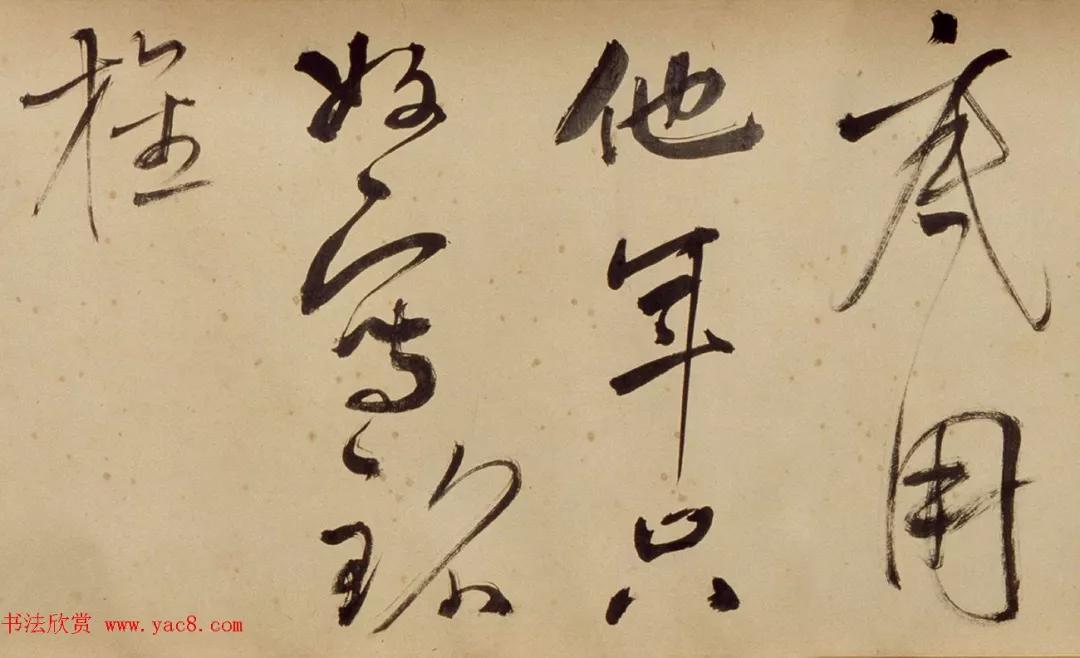 底用
他年只
好寫珎
书法欣赏 www.yac8.com